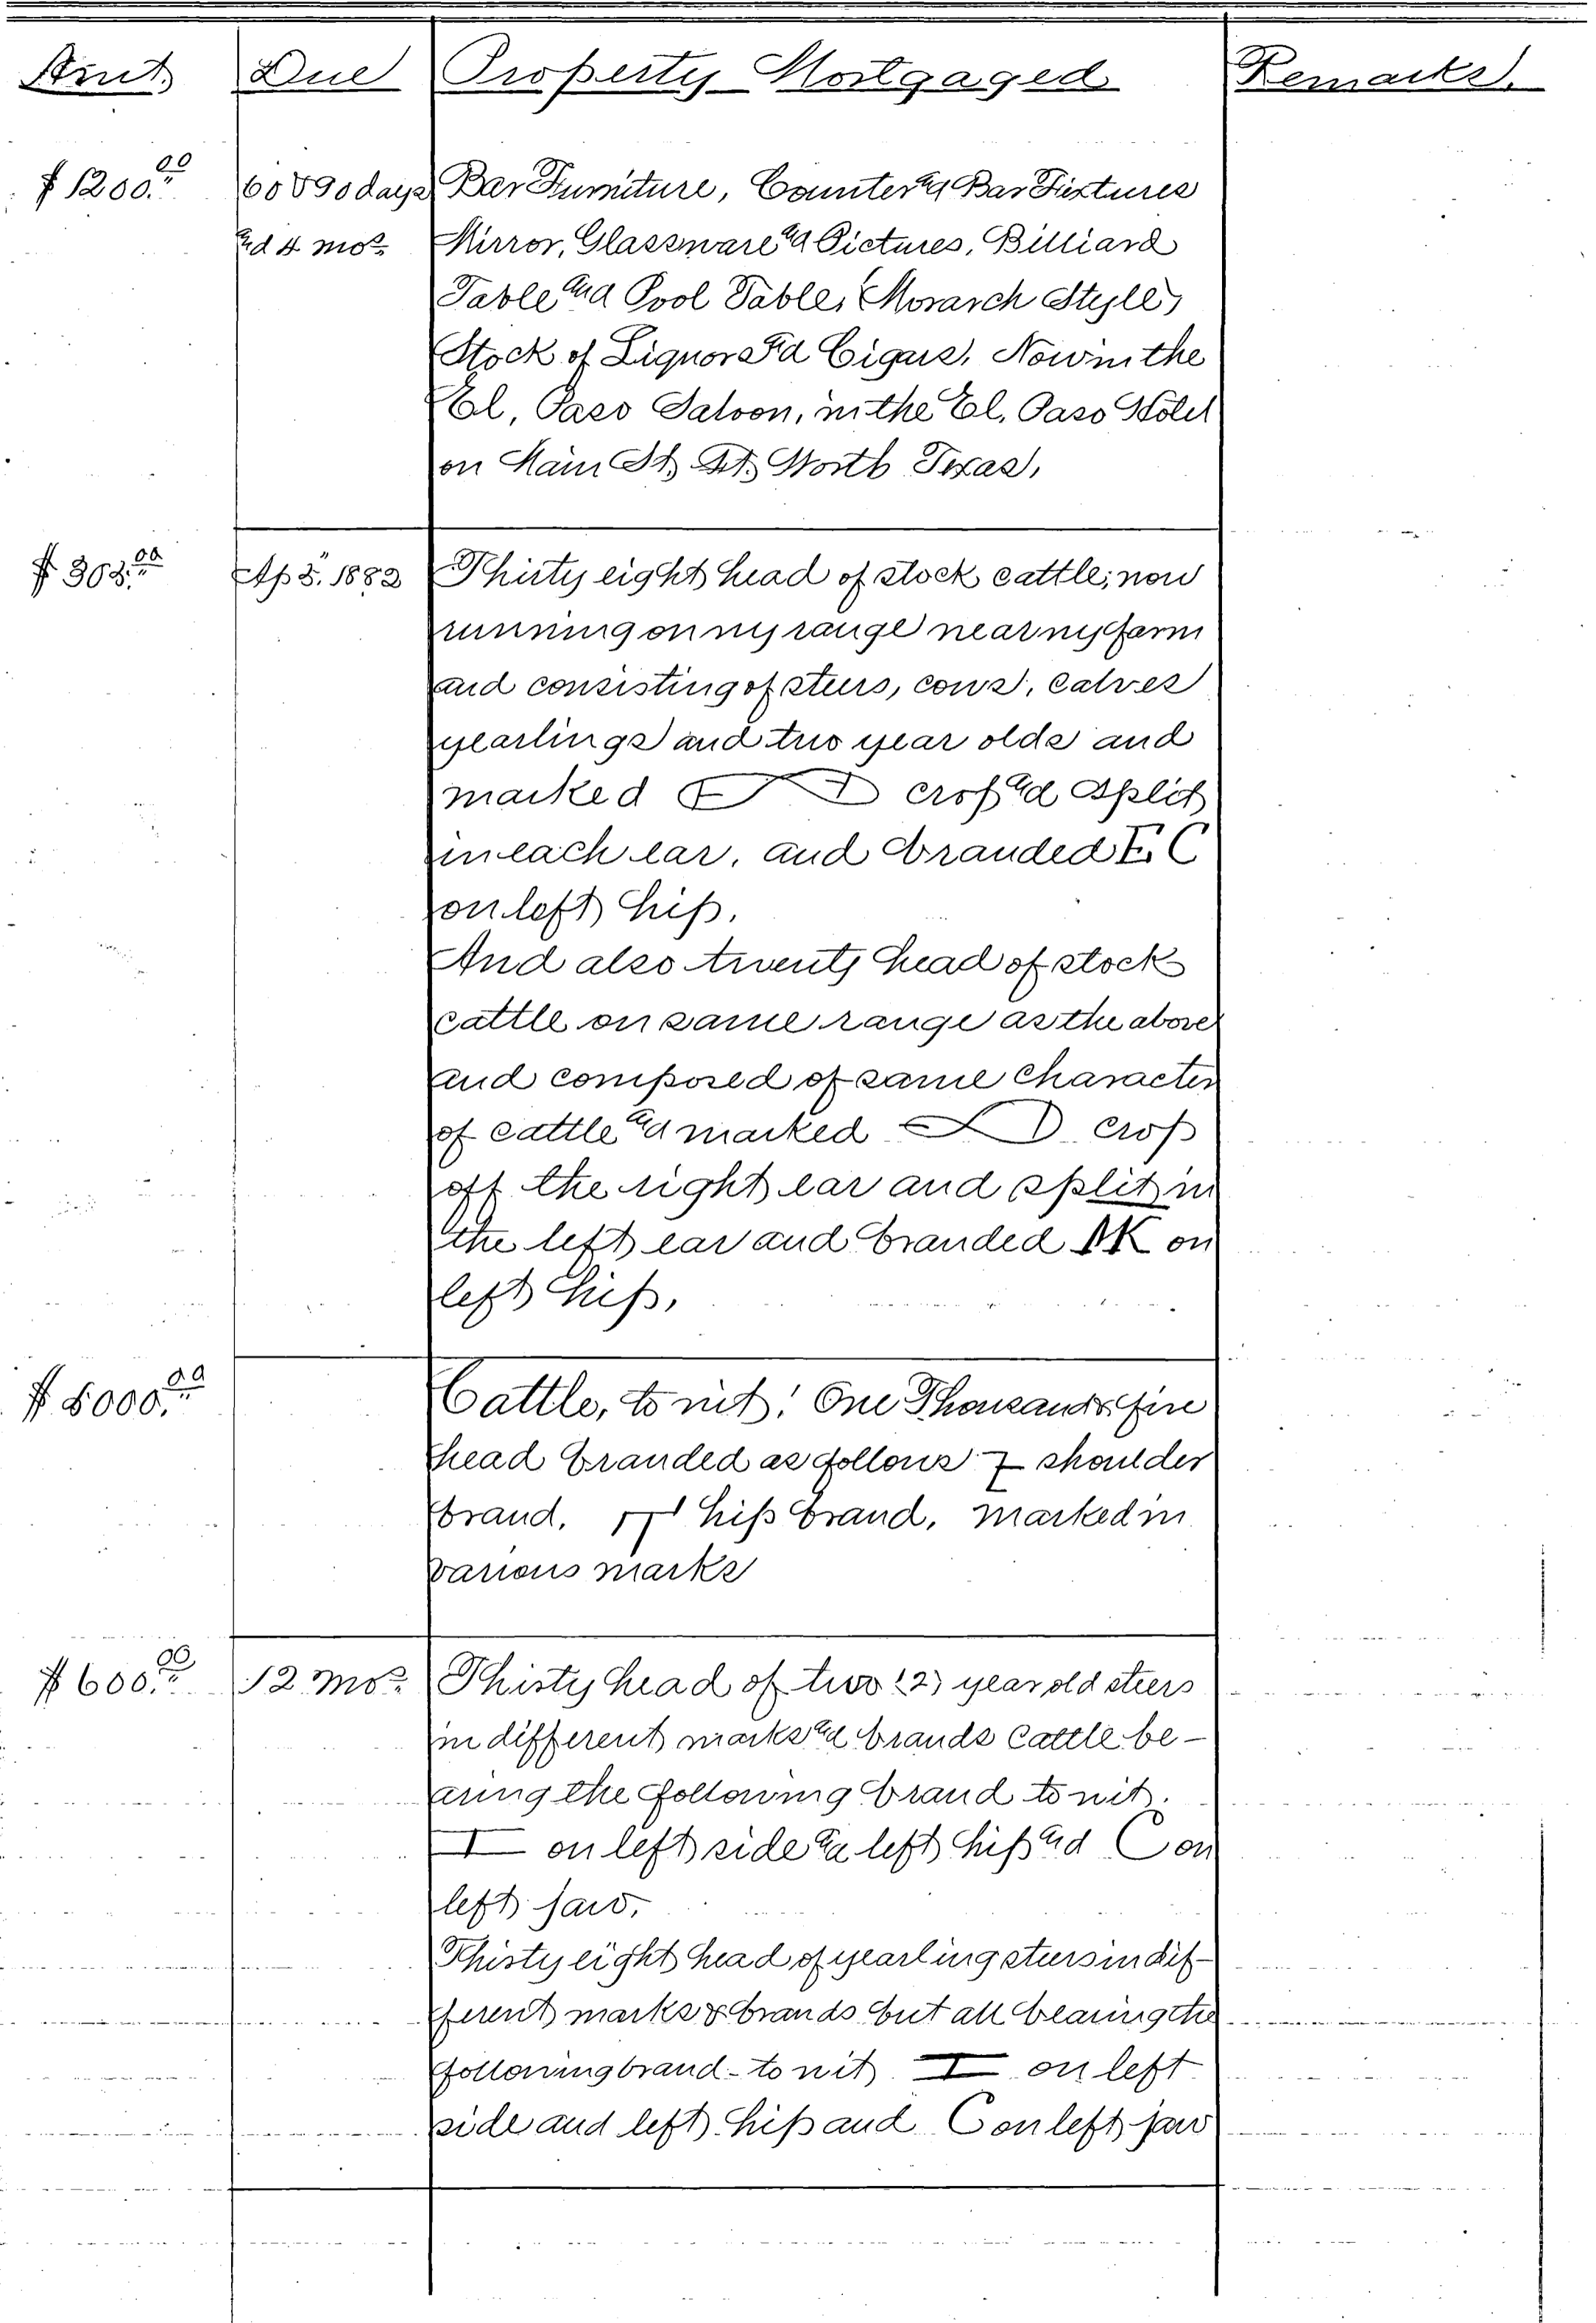 Amt. Due Property Mortgaged Remarks.
$1200.00 60 & 90 days Bar Furniture, Counter & Bar Fixtures
and 4 mos. Mirror, Glassware and Pictures, Billiard
Table and Pool Table, Monarch Style,
Stock of Liquors and Cigars, Now in the
El, Paso Saloon, in the El, Paso Hotel
on Main St. Ft. Worth Texas,
Thirty eight head of stock cattle, now
running on my range near my farm
and consisting of steers, cows, calves
yearlings and two year olds and
marked crop and split
in each ear, and branded E. C
on left hip.
And also twenty head of stock
cattle on same range as the above
and composed of same character
of cattle and marked crop
off the right ear and split in
the left ear and branded on
left hip,
Cattle, to wit: One Thousand fine
head branded as follows 7 shoulder
brand, hip brand, marked in
various marks
$600.00 12 mos. Thirty head of two (2) year old steers
in different marks and brands Cattle be-
aring the following brand to wit.
I on left side and left hip and C on
left jaw,
Thirty eight head of yearling steers in dif-
ferent marks & brands but all bearing the
following brand - to wit I on left
side and left hip and C on left jaw